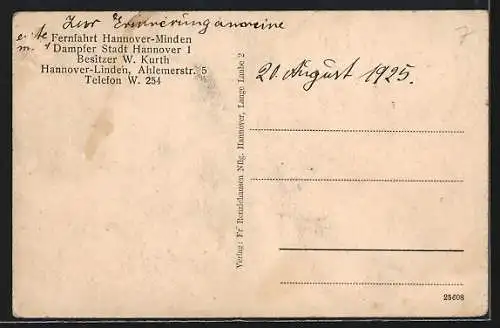 Zur Erinnerung an meine
erste Fernfahrt Hannover-Minden
m. d Dampfer Stadt Hannover I
Besitzer W. Kurth
Hannover-Linden, Ahlemerstr. 5
Telefon W. 254
20. August 1925.
7
Verlag: Fr. Rennziehausen Nflg. Hannover, Lange Laube 2
25608